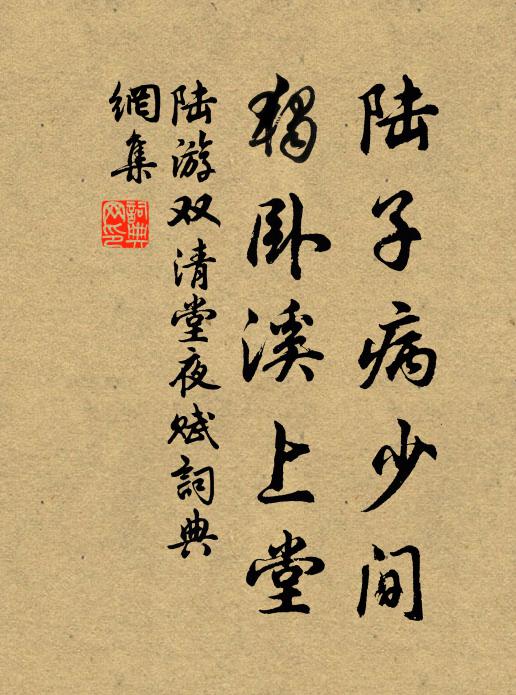 陆子病少间
獨卧溪上堂
陆游双清堂夜赋詞典
網集
詞典
网印